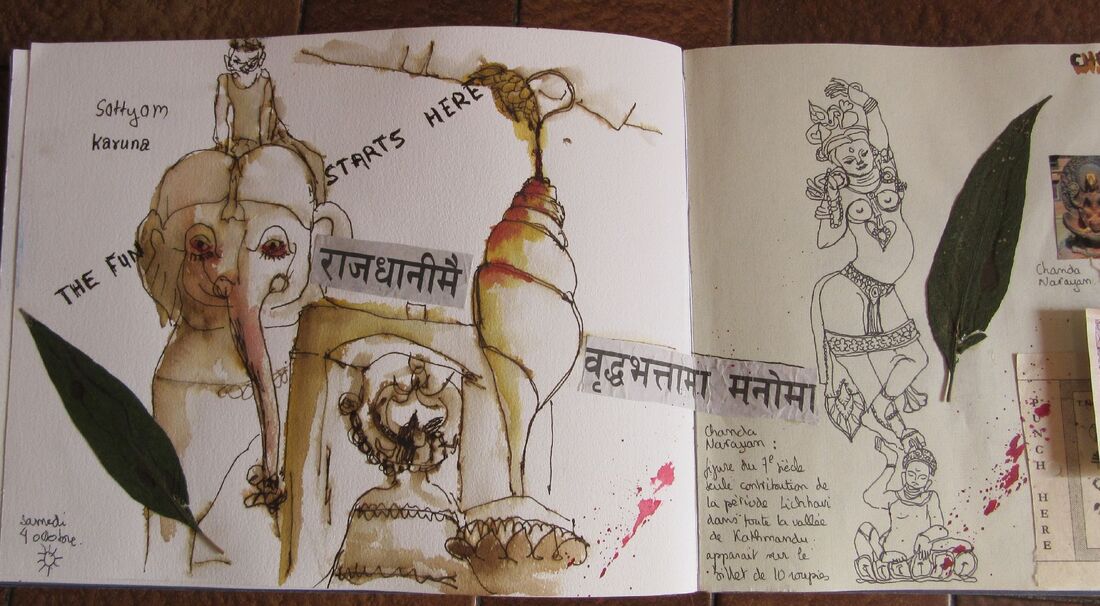 Sattyam
Karuna
THE FUN
STARTS HERE
राजधानीमै
वृद्धभत्तामा मनोमा
samedi
4 octobre.
Chanda
Narayan :
figure du 7e siècle
seule contribution de
la période Lichhavi
dans toute la vallée
de Kathmandu
apparait sur le
billet de 10 roupies
Chanda
Narayan.
PUNCH HERE